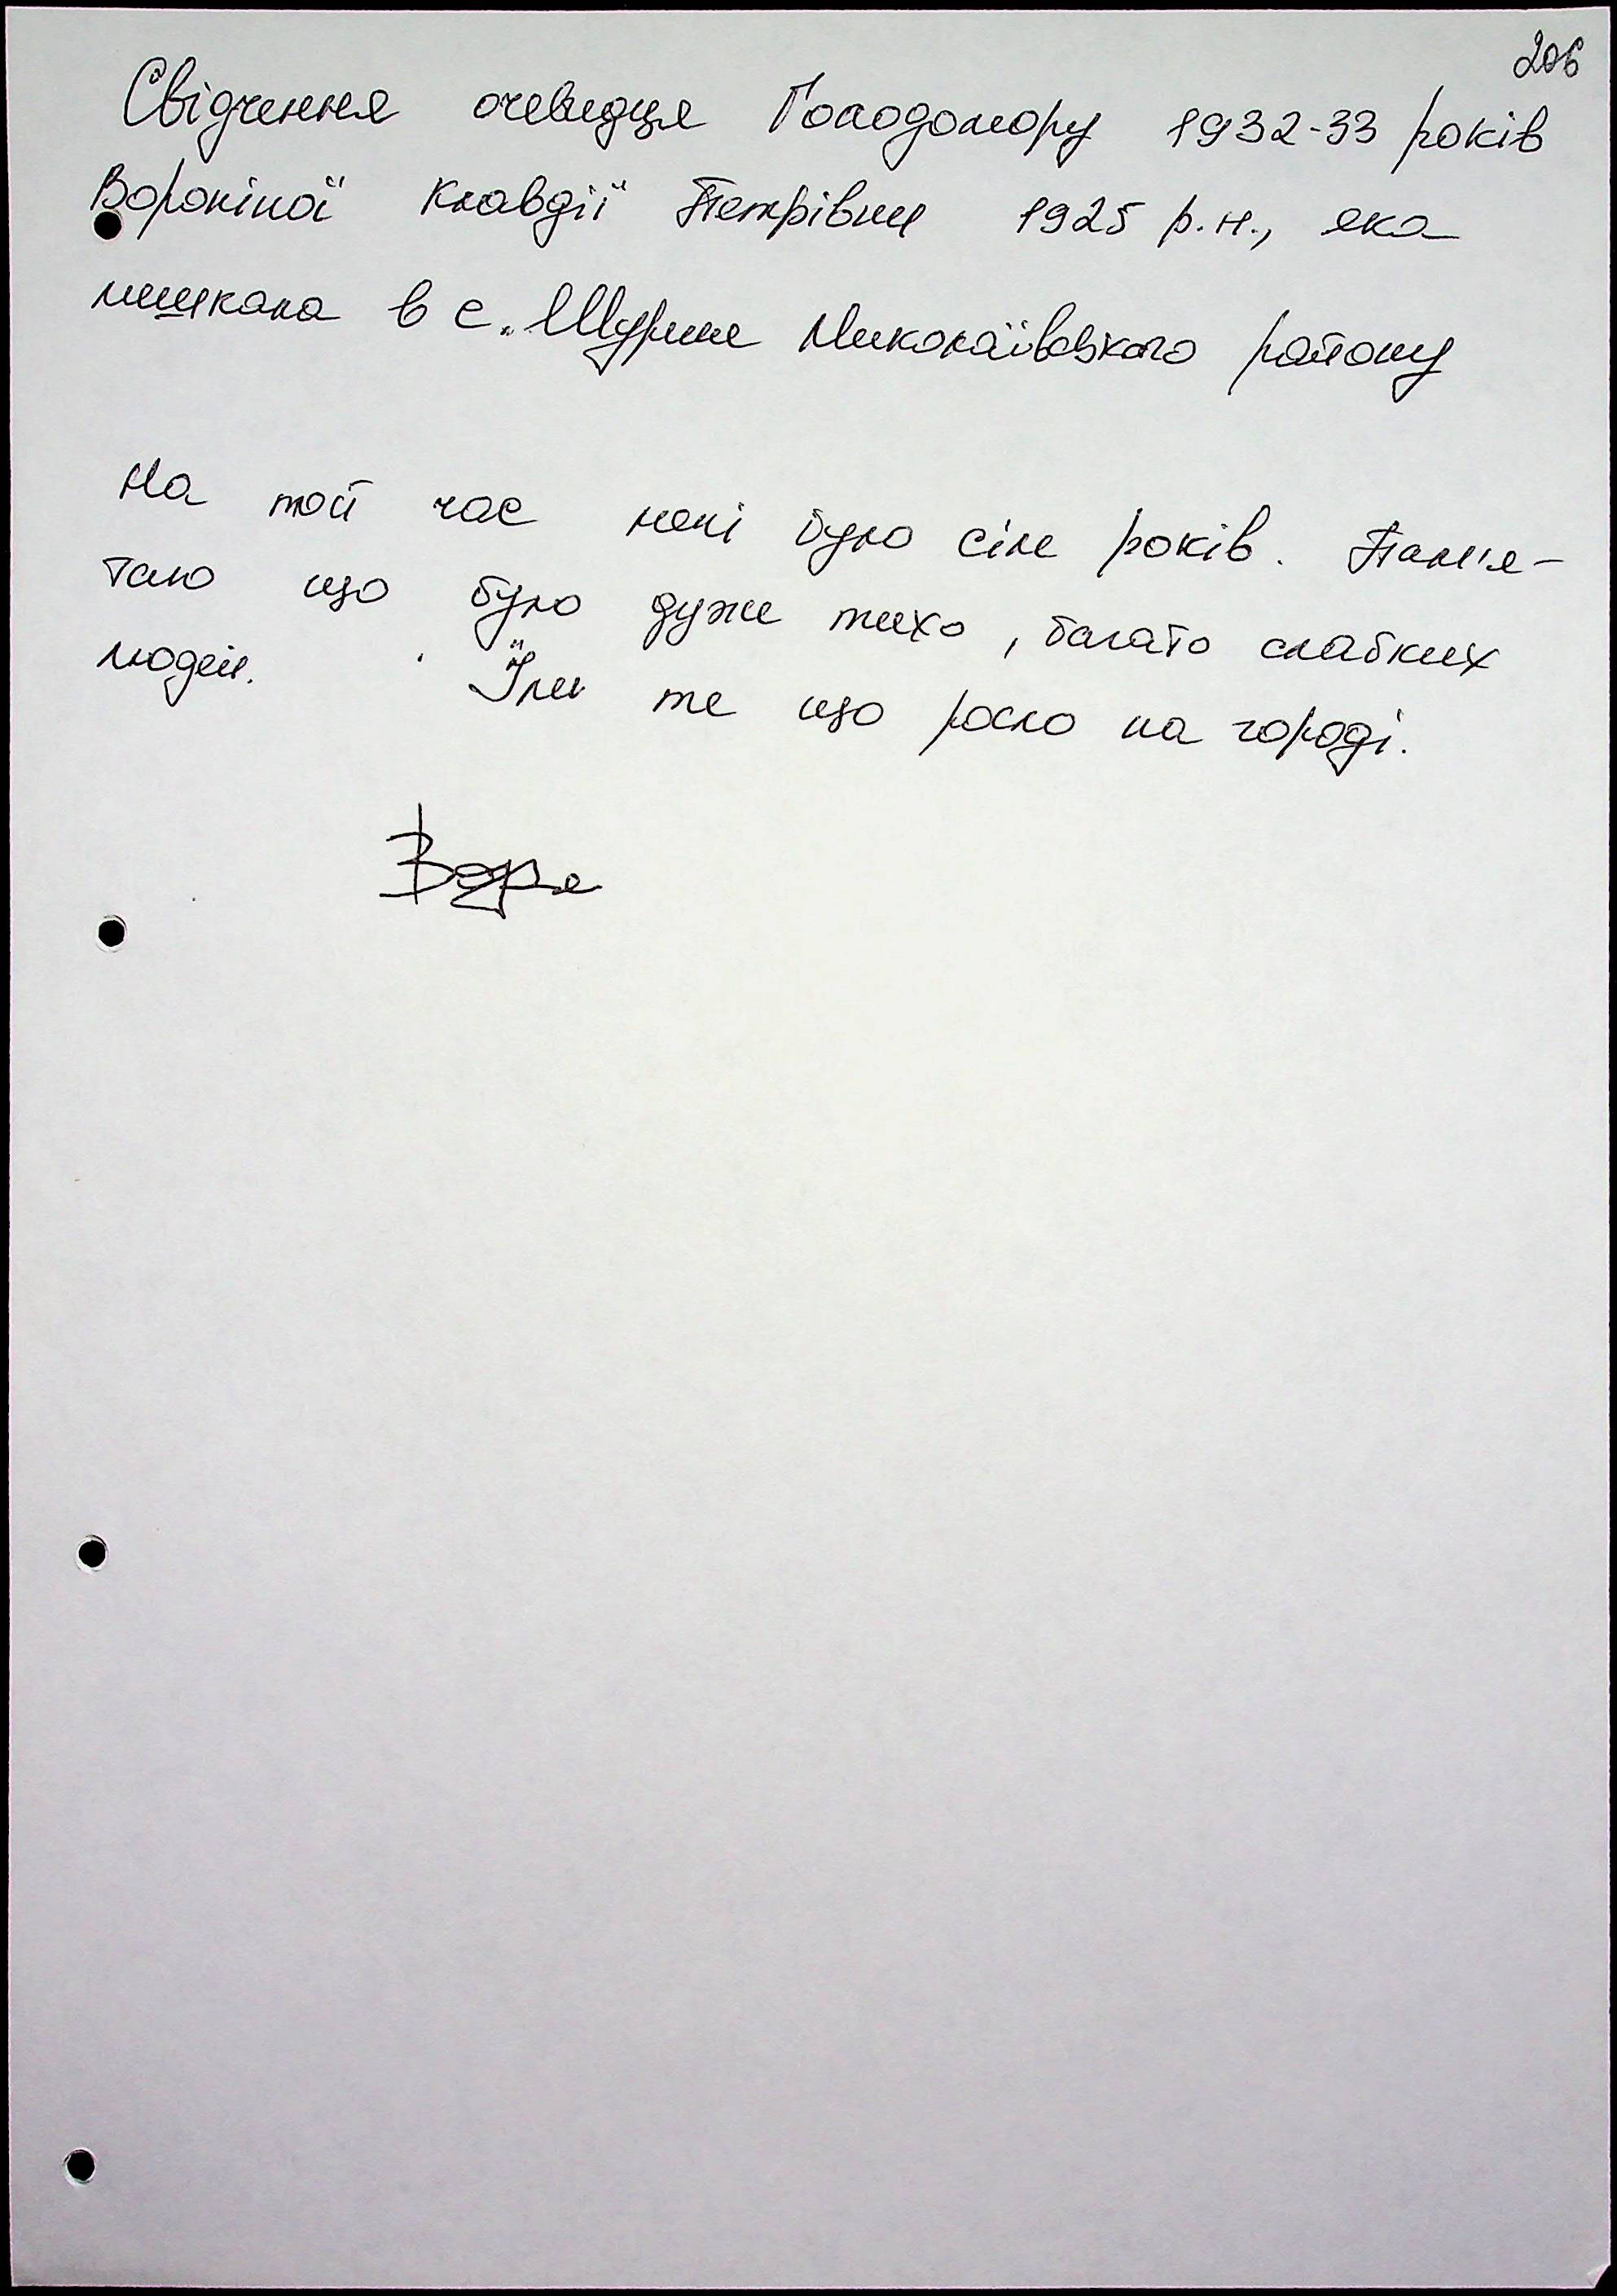 206
Свідчення очевидця Голодомору 1932-33 років
Вороніної Клавдії Петрівни 1925 р.н., яка
мешкала в с. Шурине Миколаївського району
На той час мені було сім років. Пам'я-
таю що було дуже тихо, багато слабких
людей. Їли те що росло на городі.